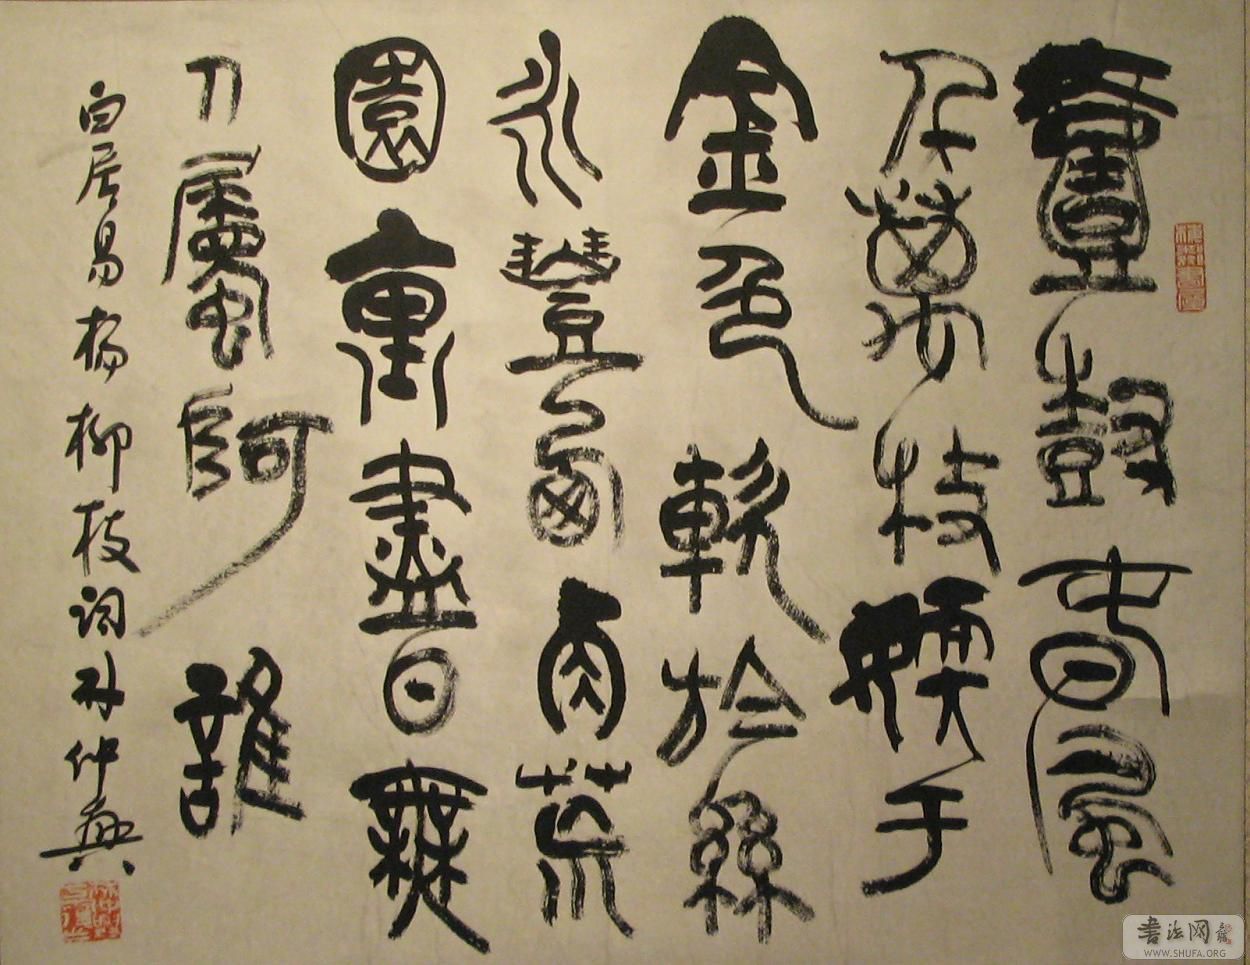 壹樹春風
千萬枝嫩于
金色軟於絲
永豐西角荒
園裏盡日無
人屬阿誰
白居易楊柳枝詞林仲興
書法网
WWW.SHUFA.ORG